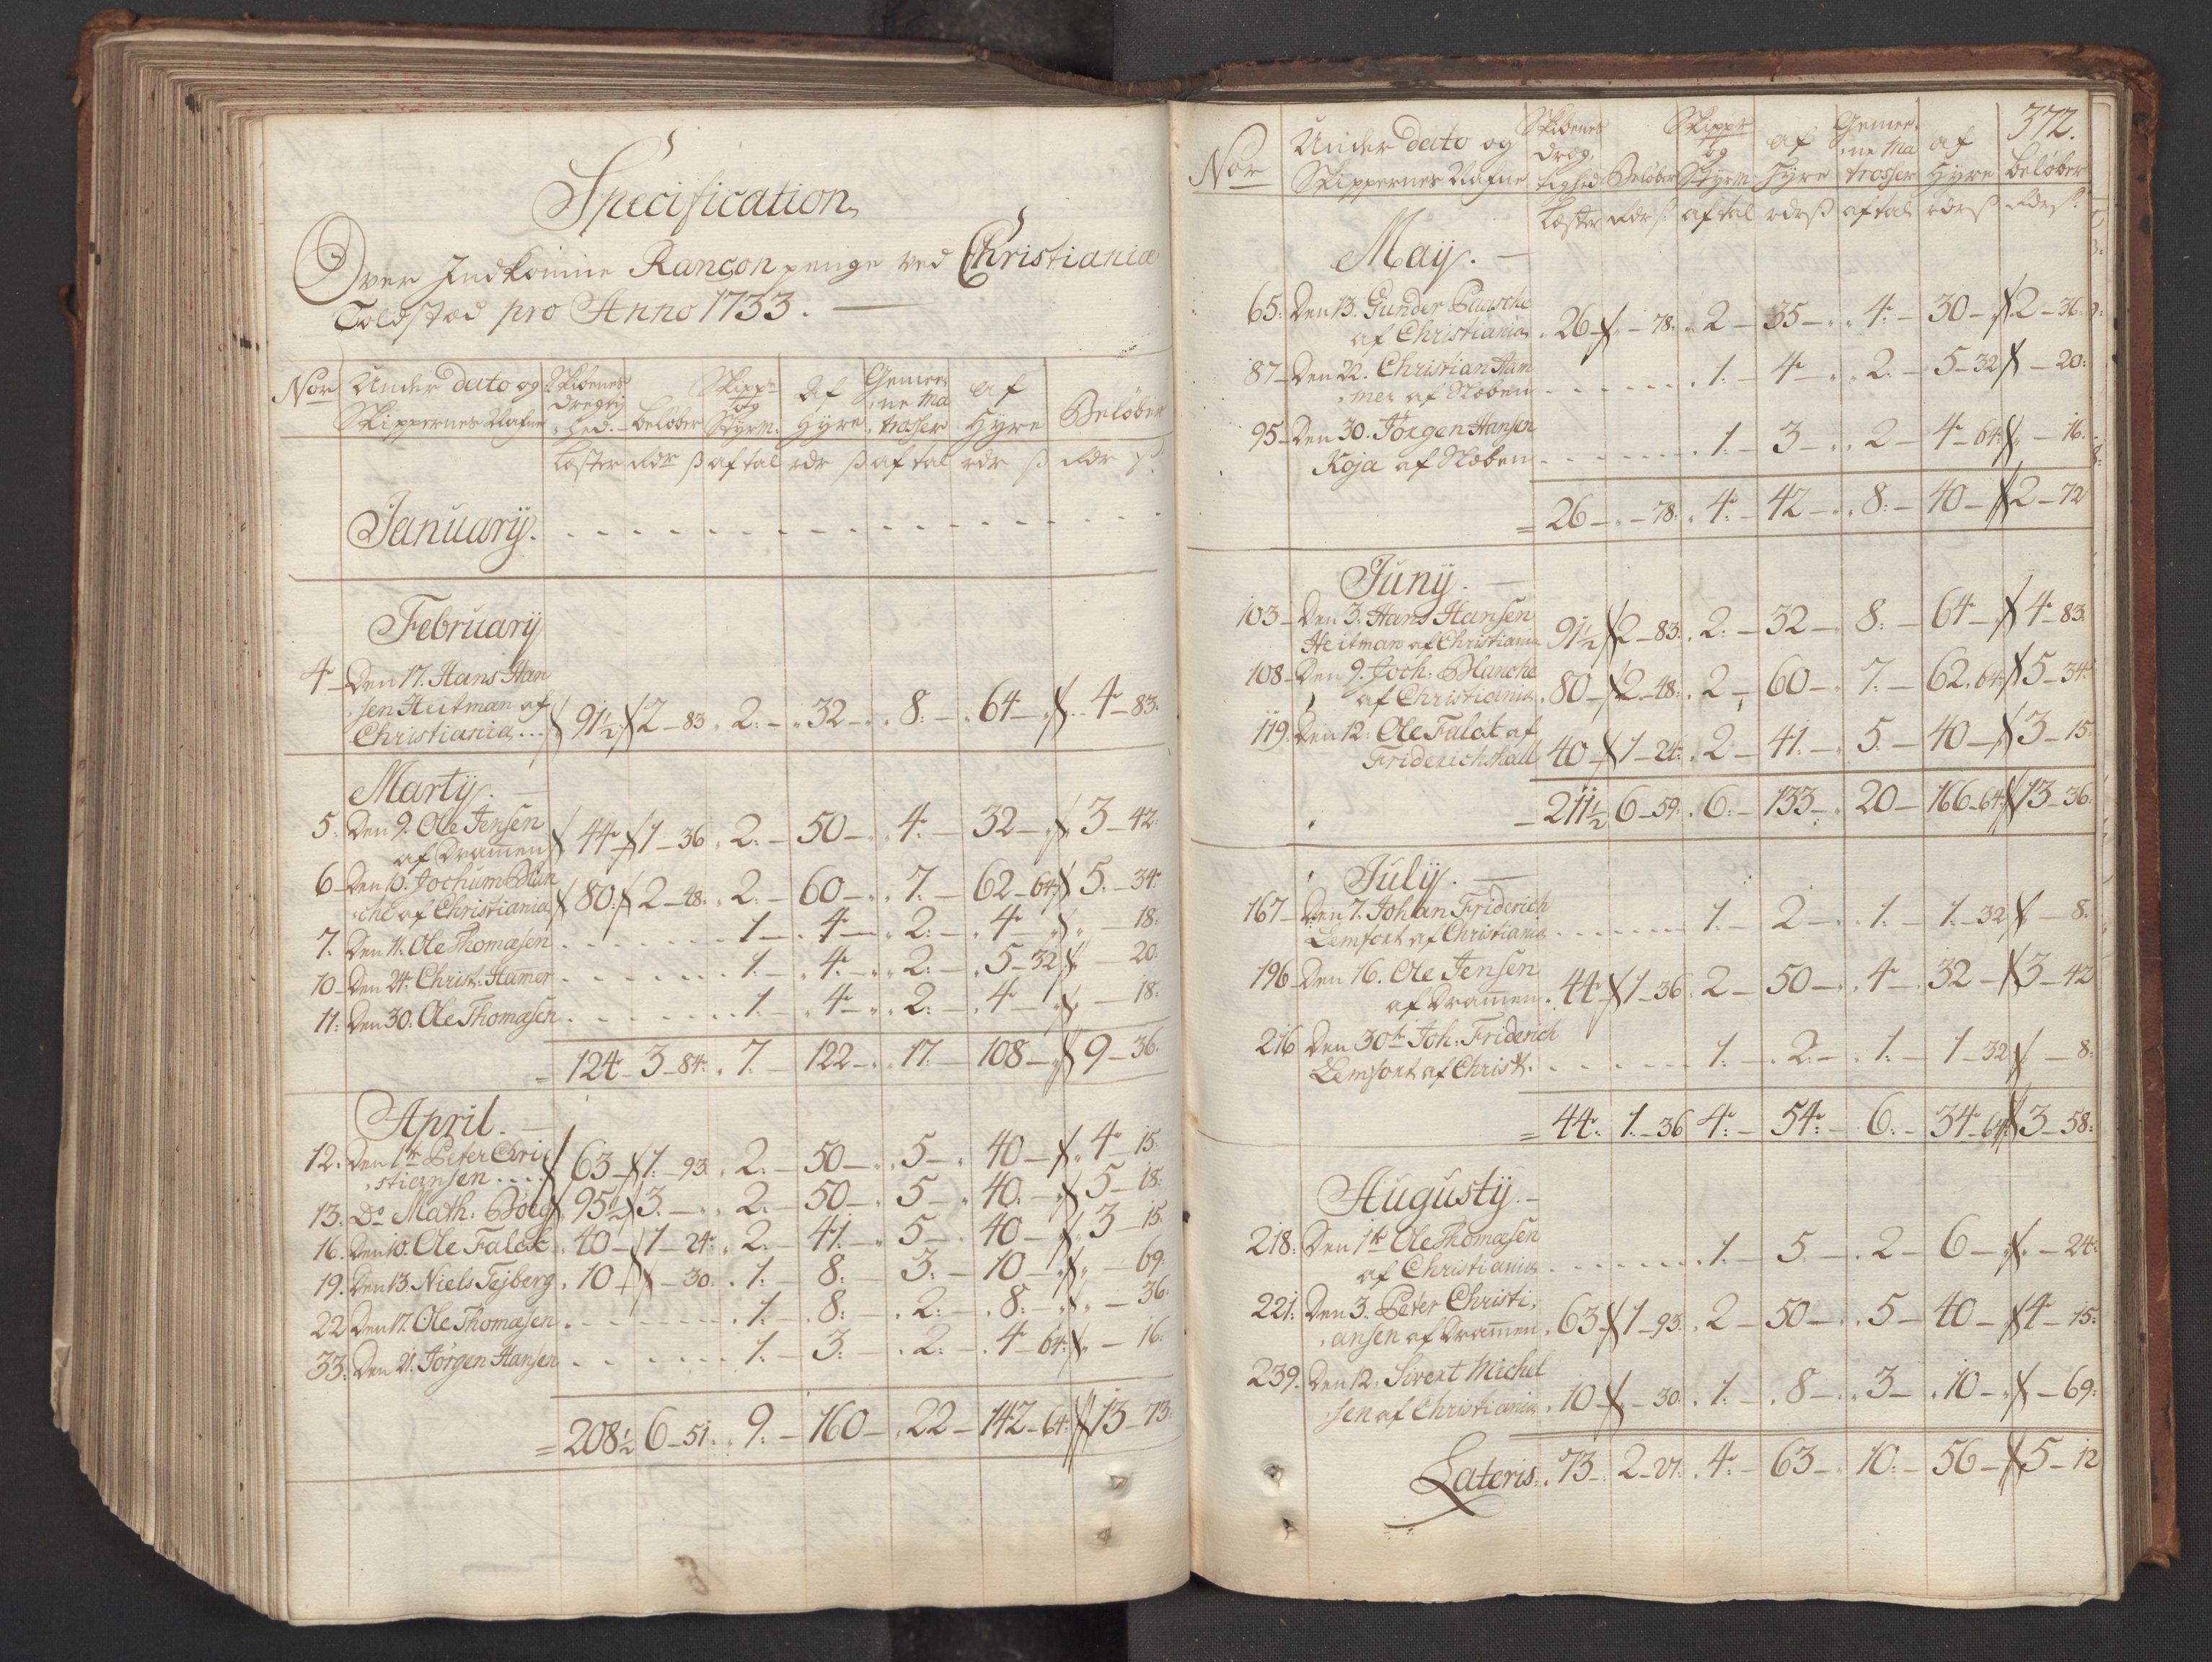 Specification
Over Indkomne Rançon penge ved Christiania
Toldsted pro Anno 1733.
Nor Under dato og Skibenes Skippr Af Gemee- af
Skippernes Nafne dregtig- hed. beløber og Styrm. Hyre -ne Matrosser Hyre Beløber
Læster Rdr ß aftal rdr ß aftal rdr ß Rdr ß
January.
February
4 Den 17. Hans Han-
sen Heitman af
Christiania 91½ 2-83 2 32 8 64 4-83
Marty.
5 Den 9. Ole Jensen
af Dramen 44 1-36 2 50 4 32 3-42
6 Den 10. Jochum Blan-
che af Christiania 80 2-48 2 60 7 62-64 5-34
7. Den 11. Ole Thomasen 1 4 2 4 -18
10 Den 24. Christ: Hamer 1 4 2 5-32 -20
11: Den 30: Ole Thomasen 1 4 2 4 -18
124 3-84 7 122 17 108 9-36
April.
12. Den 1te Peter Chri-
stiansen 63 1-93 2 50 5 40 4-15
13. Do Math: Bølg 95½ 3 2 50 5 40 5-18
16. Den 10. Ole Falck 40 1-24 2 41 5 40 3-15
19. Den 13. Niels Tejberg 10 -30 1 8 3 10 -69
22 Den 17. Ole Thomasen 1 8 2 8 -36
33. Den 21. Jørgen Hansen 1 3 2 4-64 -16
208½ 6-51 9 160 22 142-64 13-73
372.
Nor Under dato og Skibenes Skippr af Gemee- af
Skippernes Nafne dræg- tighed Beløber og Styrm Hyre -ne Matrosser Hyre beløber
Læster Rdr ß aftal rdr ß aftal rdr ß Rdr ß
May.
65: Den 13. Gunder Paasche
af Christiania 26 -78 2 35 4 30 2-36
87 Den 22. Christian Ham-
mer af Stoben 1 4 2 5-32 -20
95 Den 30. Jørgen Hansen
Koja af Stoben 1 3 2 4-64 -16
26 -78 4 42 8 40 2-72
Juny.
103 Den 3. Hans Hansen
Heitman af Christiania 91½ 2-83 2 32 8 64 4-83
108 Den 9. Joch: Blanche
af Christiania 80 2-48 2 60 7 62-64 5-34
119: Den 12: Ole Falck af
Friderichshall 40 1-24 2 41 5 40 3-15
211½ 6-59 6 133 20 166-64 13-36
July.
167 Den 7. Johan Friderich
Lemfort af Christiania 1 2 1 1-32 -8
196 Den 16. Ole Jensen
af Dramen 44 1-36 2 50 4 32 3-42
216 Den 30te Joh: Friderich
Lemfort af Christ. 1 2 1 1-32 -8
44 1-36 4 54 6 34-64 3-58
Augusty.
218: Den 1te Ole Thomasen
af Christiania 1 5 2 6 -24
221: Den 3. Peter Christi-
ansen af Dramen 63 1-93 2 50 5 40 4-15
239. Den 12. Sivert Michel-
sen af Christiania 10 -30 1 8 3 10 -69
Lateris 73 2-27 4 63 10 56 5-12